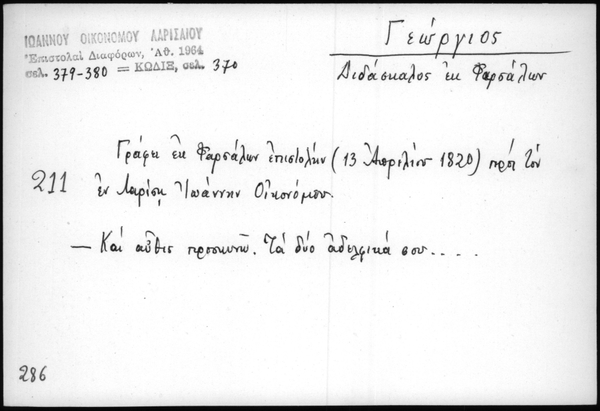 ΙΩΑΝΝΟΥ ΟΙΚΟΝΟΜΟΥ ΛΑΡΙΣΑΙΟΥ
Ἐπιστολαὶ Διαφόρων, Ἀθ. 1964
σελ. 379-380 = ΚΩΔΙΞ, σελ. 370
Γεώργιος
Διδάσκαλος ἐκ Φαρσάλων
Γράφει ἐκ Φαρσάλων ἐπιστολὴν (13 Ἀπριλίου 1820) πρὸς τὸν
211
ἐν Λαρίσῃ Ἰωάννην Οἰκονόμου.
— Καὶ αὖθις προσκυνῶ. Τὰ δύο ἀδελφικά σου.....
286